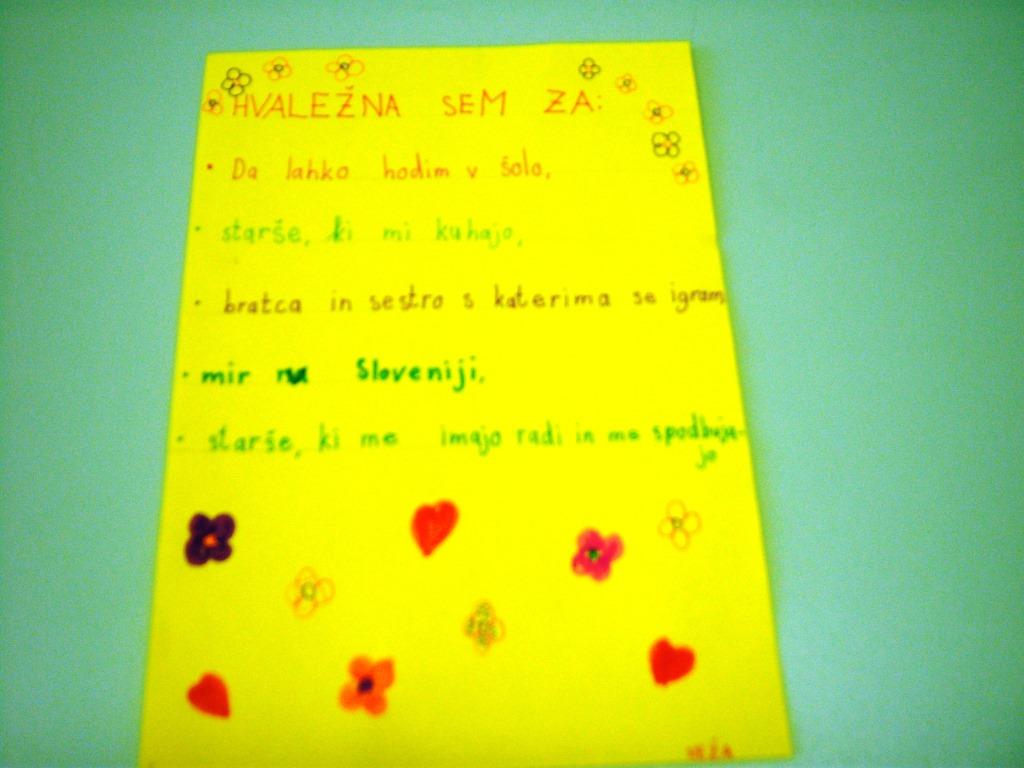 HVALEŽNA SEM ZA:
• Da lahko hodim v šolo,
• starše, ki mi kuhajo,
• bratca in sestro s katerima se igram,
• mir na Sloveniji,
• starše, ki me imajo radi in me spodbuja-
jo